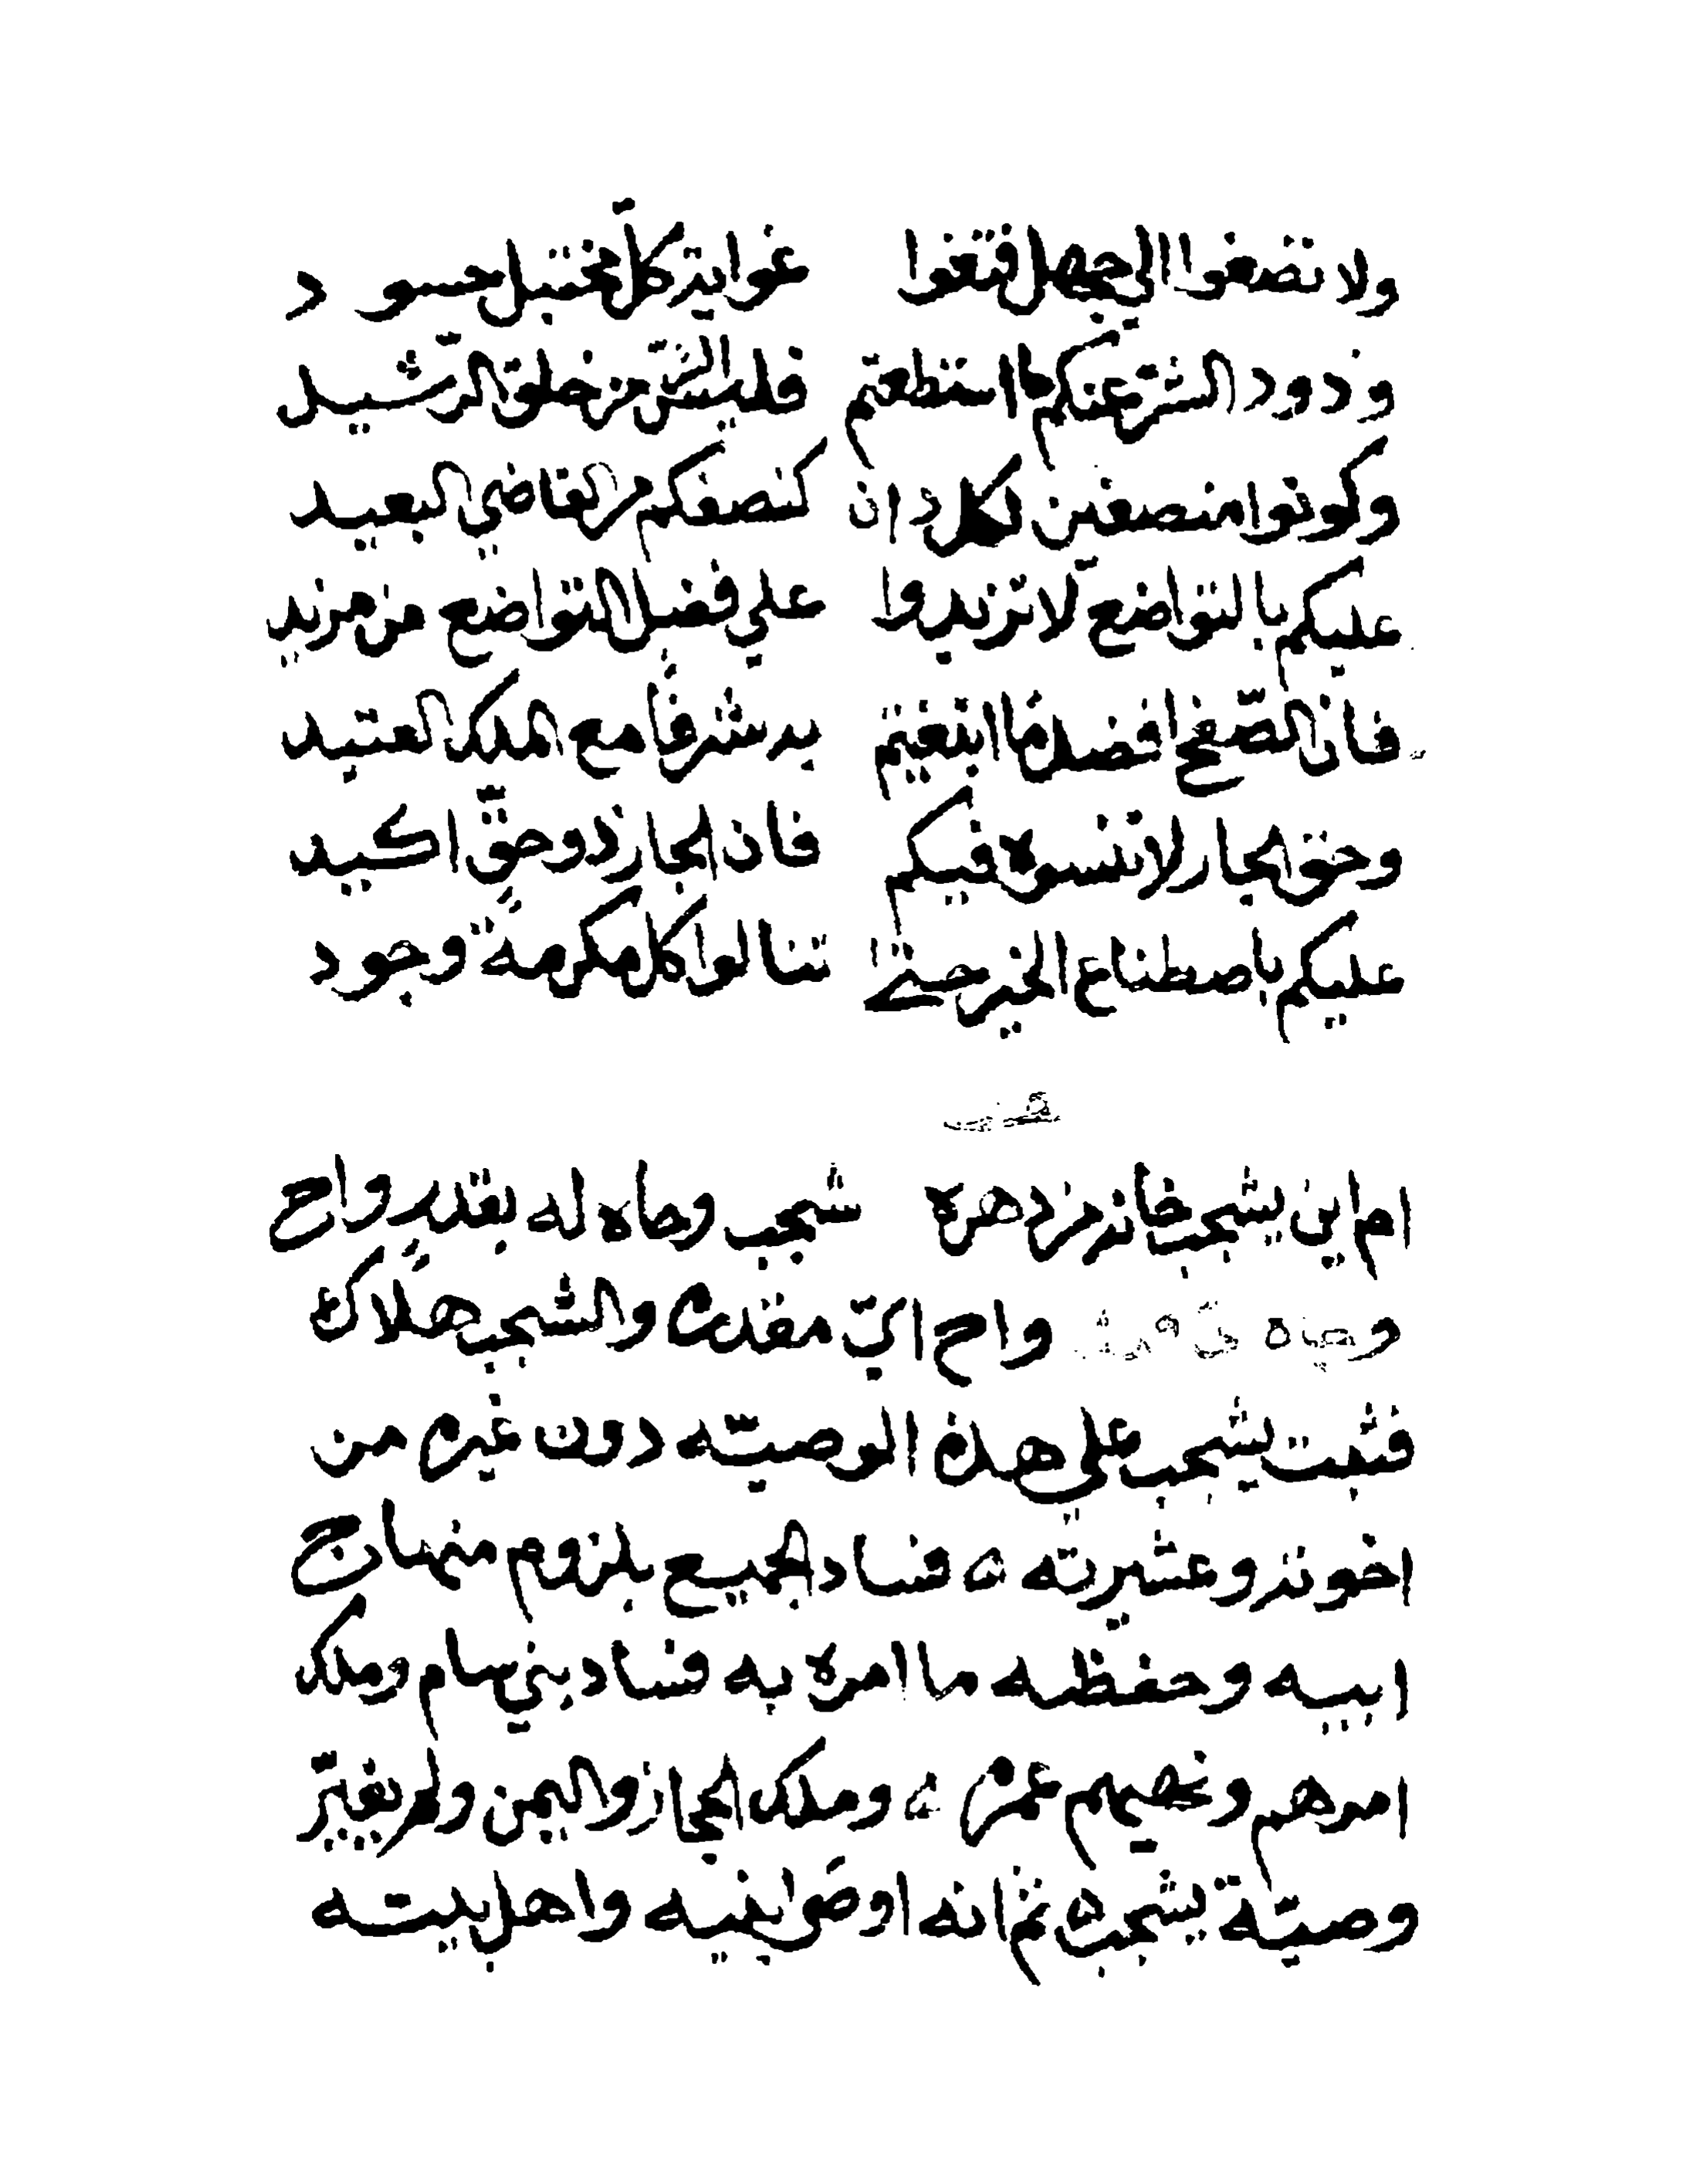 ولا تصغوا الي جهل فتغووا غواية كلّ مختبل حسود
وذودوا الشرّ عنكم ما استطعتم فليس الشرّ من خلق الرّشيد
وكونوا منصفين لكل دان كنصفكم من القاضي البعيد
عليكم بالتواضع لا تزيدوا علي فضل التواضع من مزيد
فانّ الصّفح افضل ما ابتغيتم به شرفًا مع الملك العتيد
وحق الجار لا تنسوه فيكم فان الجار ذو حقّ اكيد
عليكم باصطناع الخير حتّے تنالوا كل مكرمةٍ وجود
ام اين يشجب خانه من دهره شجب وحاه له بقدرٍ واح
واح ايّ مقدر والشجب هلاك
فثبت يشجب علي هذه الوصيّه دون غيره من
اخوته وعشيرته ه فساد الجميع بلزوم منهاج
ابيه وحفظه ما امره به فساد بني سام وملك
امرهم ونهيهم عمره وملك الحجاز واليمن
وصيّة يشجب ه ثم انه اوصى بنيه واهل بيته